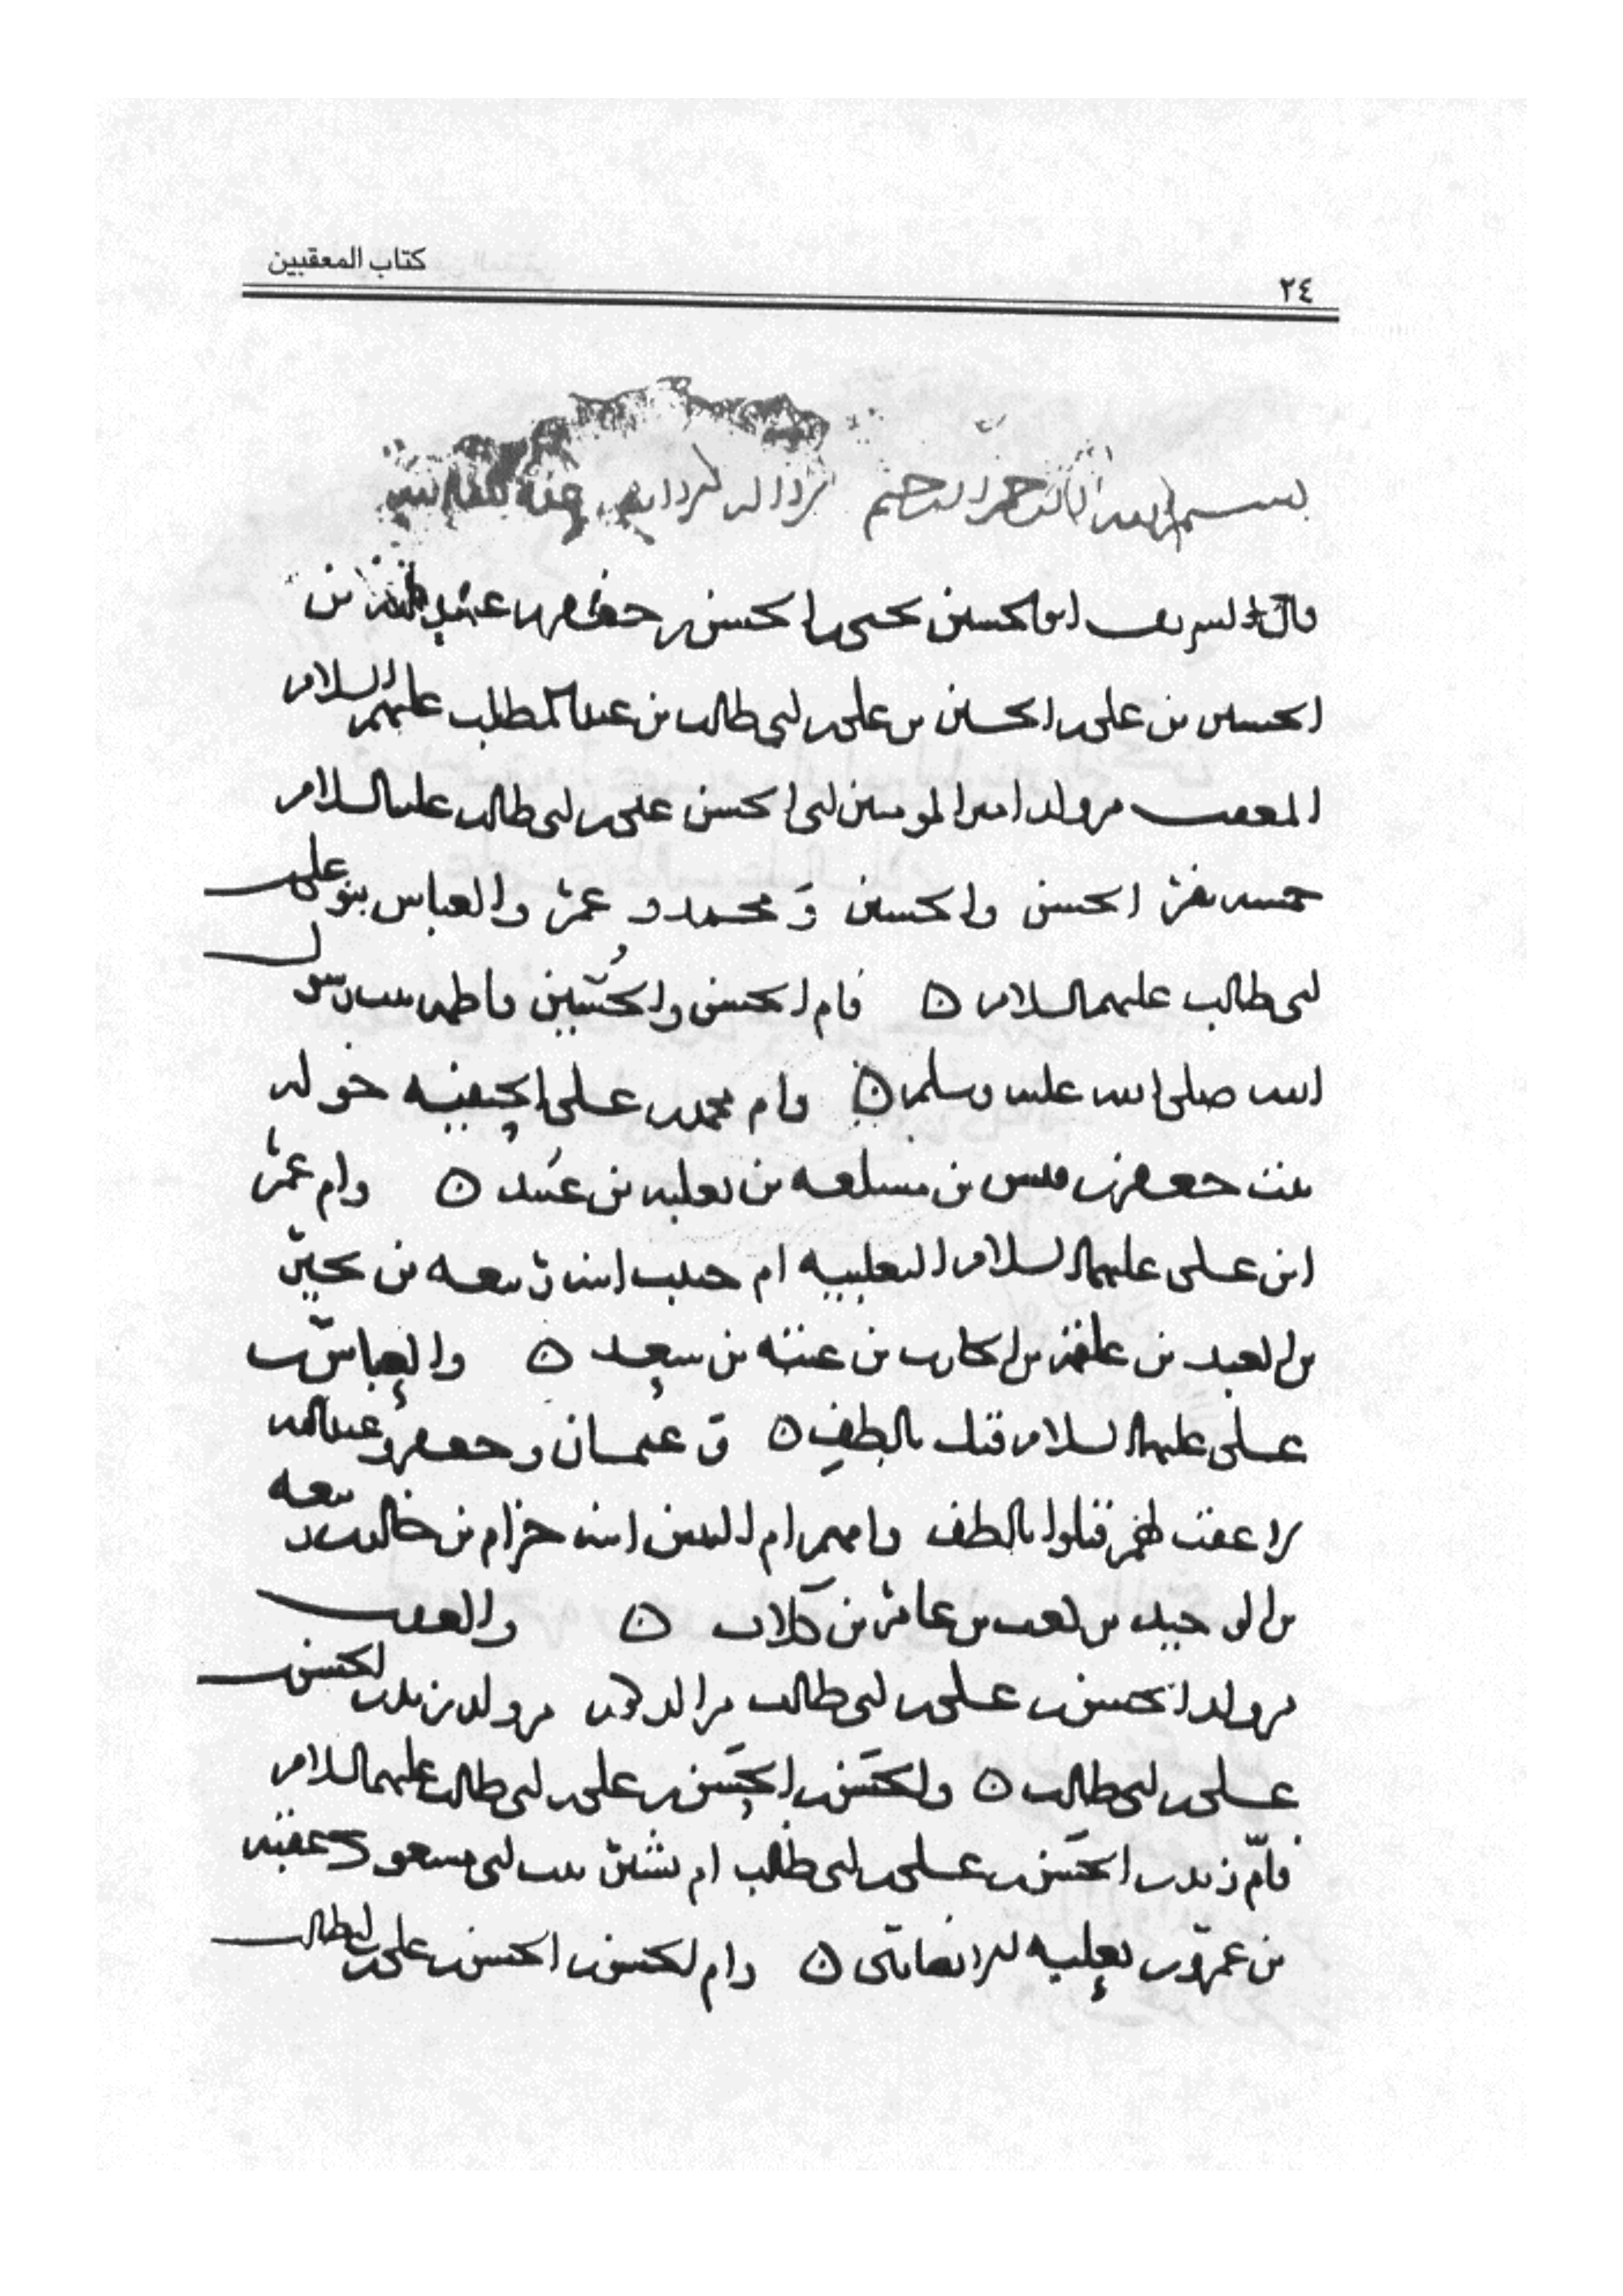 كتاب المعقبين
٢٤
بسم الله الرحمن الرحيم
قال الشريف ابو الحسين يحيى بن الحسن بن جعفر بن عبيد الله بن
الحسين بن علي بن الحسين بن علي بن ابي طالب بن عبد المطلب عليهم السلام
المعقب من ولد امير المومنين ابي الحسن علي بن ابي طالب عليه السلام
خمسه نفر الحسن والحسين ومحمد وعمر والعباس بنو علي بن
ابي طالب عليهم السلام فام الحسن والحسين فاطمه بنت رسول
الله صلى الله عليه وسلم وام محمد بن علي الحنفيه خوله
بنت جعفر بن قيس بن مسلمه بن ثعلبه بن عبيد وام عمر
ابن علي عليهما السلام التغلبيه ام حبيب ابنه ربيعه بن بحير
بن العبد بن علقمه بن الحارث بن عتبه بن سعيد والعباس بن
علي عليهما السلام قتل بالطف وعثمان وجعفر وعبد الله
لا عقب لهم قتلوا بالطف وامهم ام البنين ابنه حزام بن خالد بن ربيعه
بن الوحيد بن كعب بن عامر بن كلاب والعقب
من ولد الحسن بن علي بن ابي طالب من ولد زيد بن الحسن بن
علي بن ابي طالب والحسن بن الحسن بن علي بن ابي طالب عليهم السلام
فام زيد بن الحسن بن علي بن ابي طالب ام بشر بنت ابي مسعود عقبه
بن عمرو بن ثعلبه الانصاري وام الحسن بن الحسن بن علي بن ابي طالب